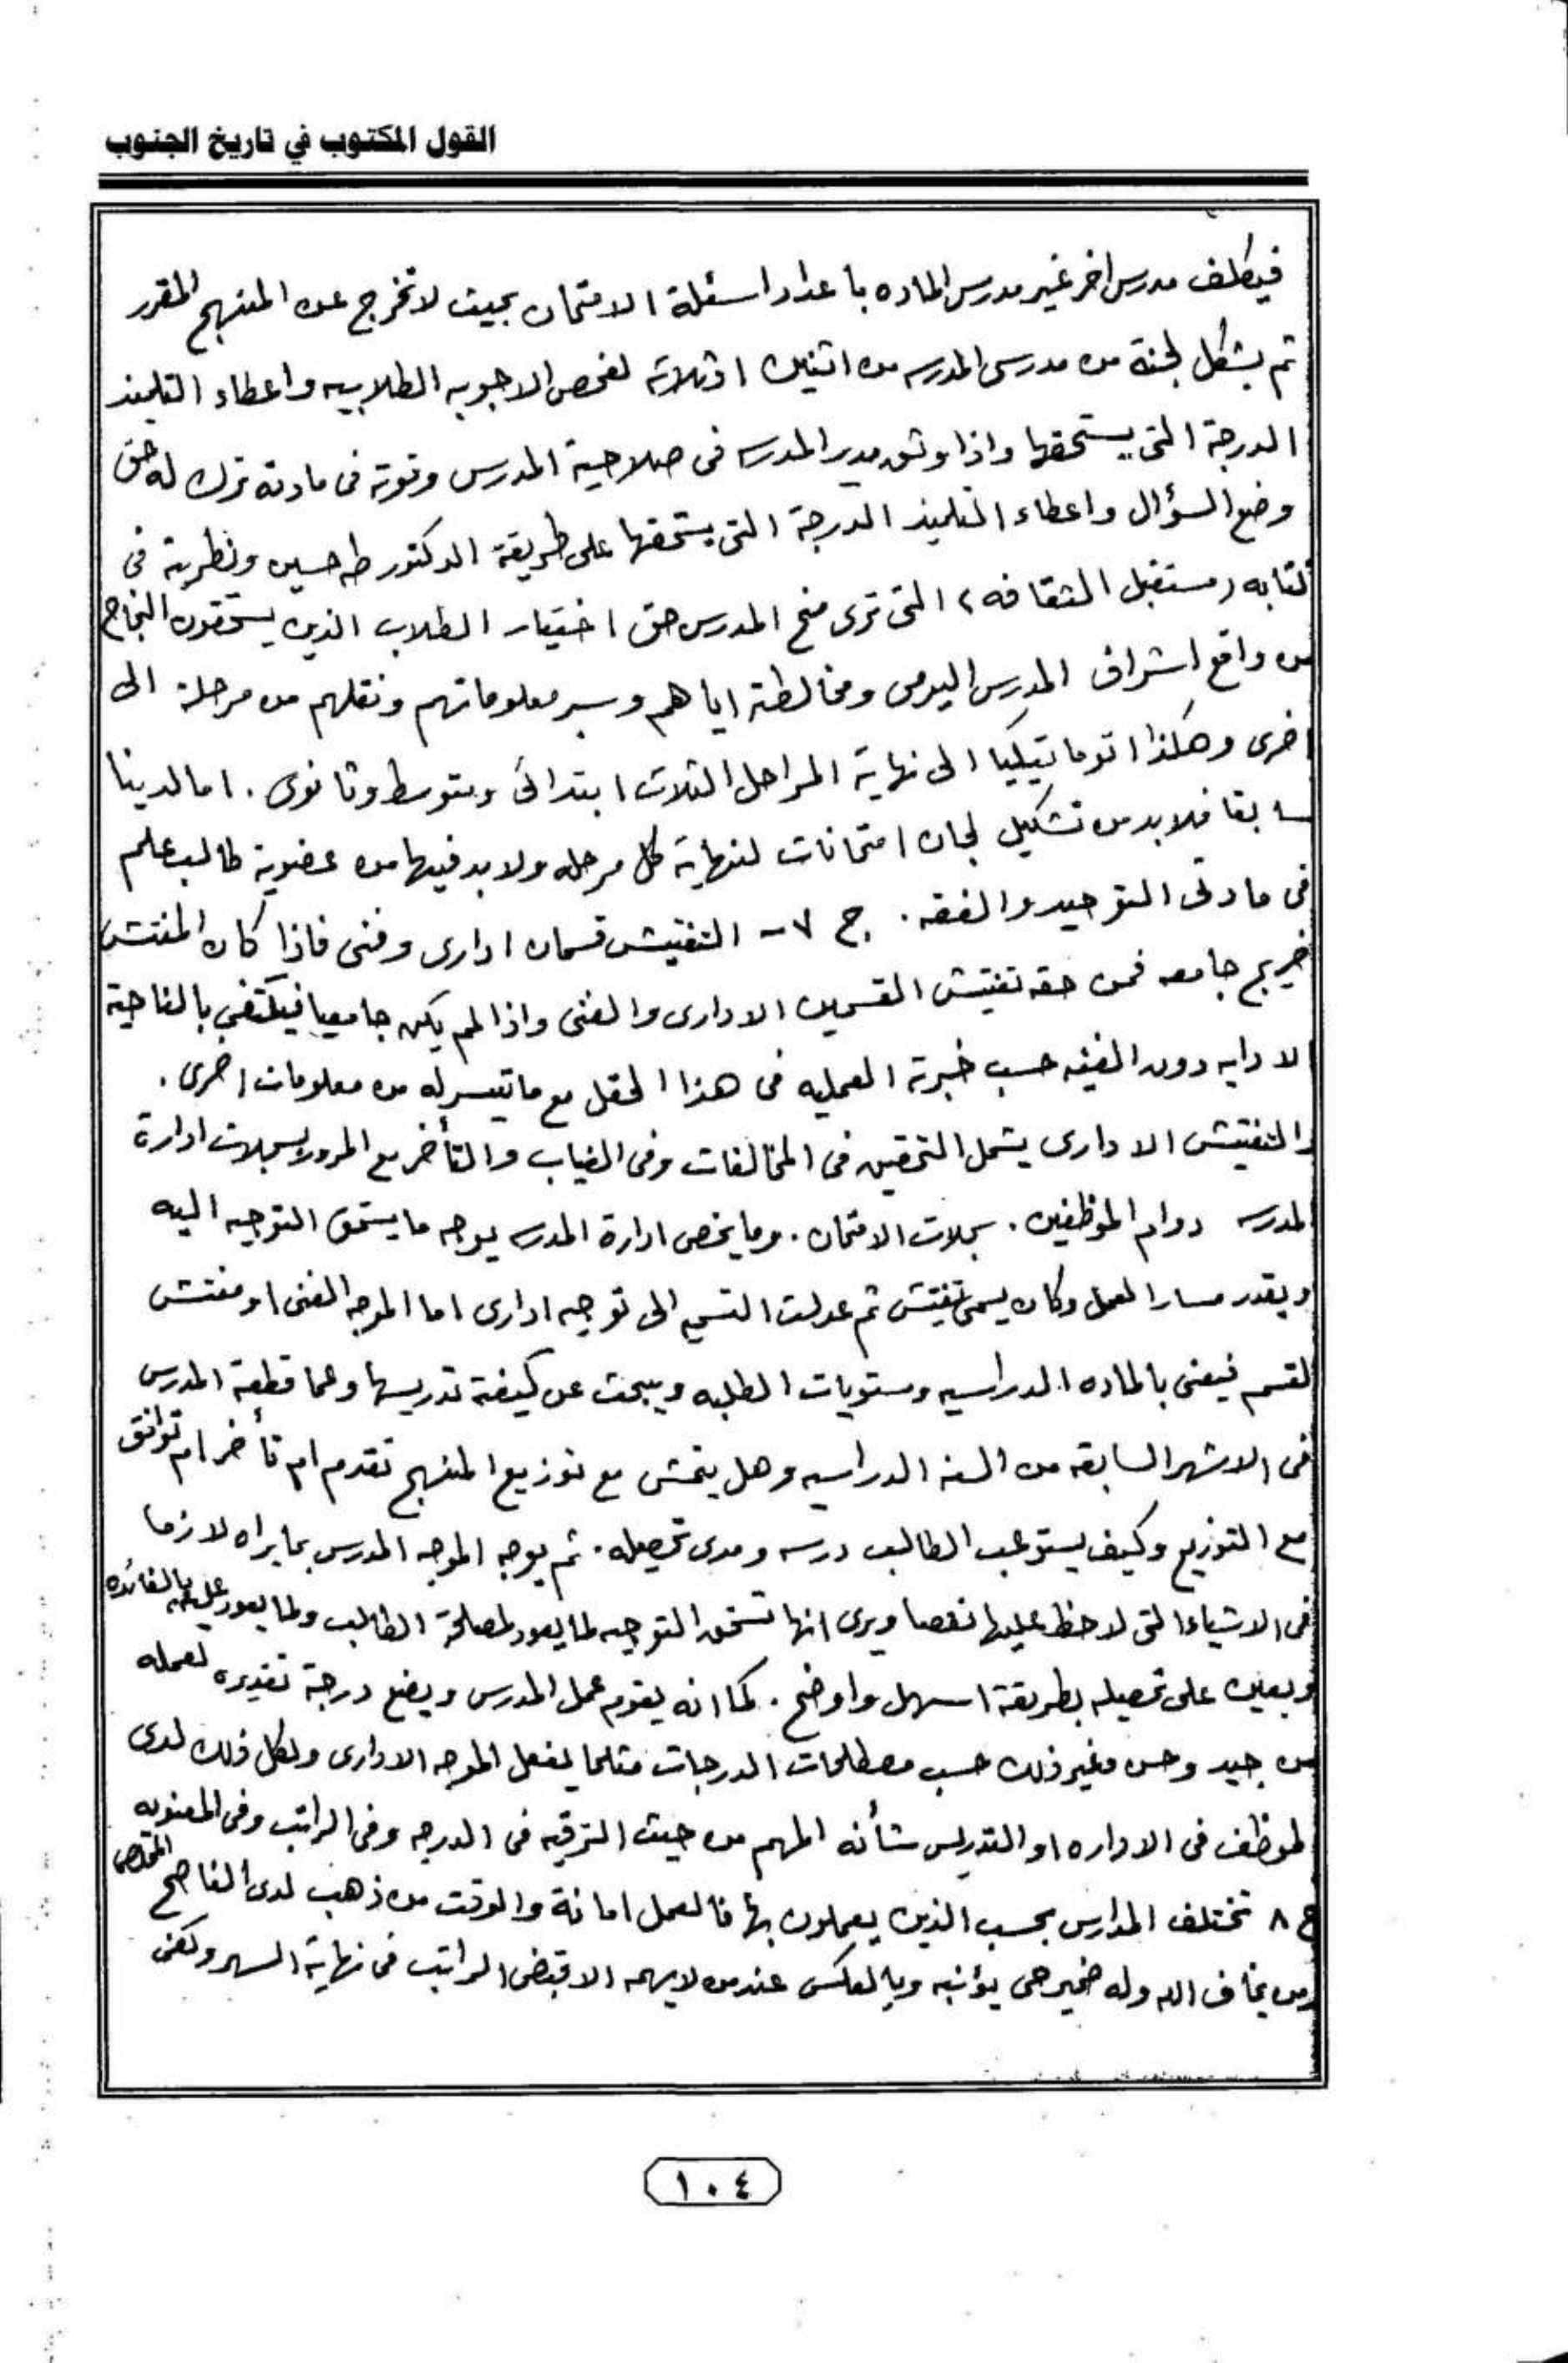 القول المكتوب في تاريخ الجنوب
فيكلف مدرس اخر غير مدرس الماده باعداد اسئلة الامتحان بحيث لا تخرج عن المنهج المقرر
ثم يشكل لجنة من مدرسى المدرسه من اثنين او ثلاثه لفحص الاجوبه الطلابيه واعطاء التلميذ
الدرجة التى يستحقها واذا وثق مدير المدرسه فى صلاحية المدرس وقوته فى مادته ترك له حق
وضع السؤال واعطاء التلميذ الدرجة التى يستحقها على طريقة الدكتور طه حسين ونظريته فى
كتابه (مستقبل الثقافه) التى ترى منح المدرس حق اختيار الطلاب الذين يستحقون النجاح
من واقع اشراف المدرس اليومى ومخالطته اياهم وسبر معلوماتهم ونقلهم من مرحلة الى
اخرى وهكذا اتوماتيكيا الى نهاية المراحل الثلاث ابتدائى ومتوسط وثانوى . اما لدينا
سابقا فلا بد من تشكيل لجان امتحانات لنهاية كل مرحله ولا بد فيها من عضوية طالب علم
فى مادتى التوحيد والفقه . ج ٧ - التفتيش قسمان ادارى وفنى فاذا كان المفتش
خريج جامعه فمن حقه تفتيش القسمين الادارى والفنى واذا لم يكن جامعيا فيكتفى بالناحية
الادايه دون الفنيه حسب خبرته العمليه فى هذا الحقل مع ما تيسر له من معلومات اخرى .
والتفتيش الادارى يشمل التحقيق فى المخالفات وفى الغياب والتأخر مع المرور بسجلات ادارة
المدرسه دوام الموظفين . سجلات الامتحان . وما يخص ادارة المدرسه يوجه ما يستحق التوجيه اليه
ويقدر مسار العمل وكان يسمى تفتيش ثم عدلت التسميه الى توجيه ادارى اما الموجه الفنى او مفتش
القسم فيعنى بالماده الدراسيه ومستويات الطلبه ويبحث عن كيفية تدريسها وعما قطعه المدرس
فى الاشهر السابقه من السنه الدراسيه وهل يتمشى مع توزيع المنهج تقدم ام تأخر ام توافق
مع التوزيع وكيف يستوعب الطالب درسه ومدى تحصيله . ثم يوجه الموجه المدرس بما يراه لازما
فى الاشياء التى لاحظ عليها نقصا ويرى انها تستحق التوجيه لما يعود لمصلحة الطالب ولما يعود عليه بالفائده
ويعين على تحصيله بطريقة اسهل واوضح . كما انه يقوم عمل المدرس ويضع درجة تقديره لعمله
من جيد وحسن وغير ذلك حسب مصطلحات الدرجات مثلما يفعل الموجه الادارى ولكل ذلك لدى
الموظف فى الاداره او التدريس شأنه المهم من حيث الترقيه فى الدرجه وفى الراتب وفى المعنويه
ج ٨ تختلف المدارس بحسب الذين يعملون بها فالعمل امانة والوقت من ذهب لدى الناصح المخلص
ومن يخاف الله وله ضمير حى يؤنبه وبالعكس عند من لا يهمه الا قبض الراتب فى نهاية الشهر وكفى
١٠٤